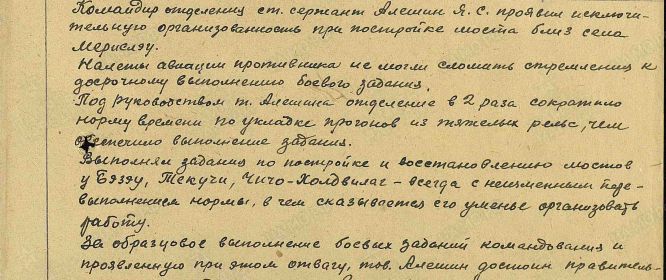 Командир отделения ст. сержант Алешин Я. С. проявил исключи-
тельную организованность при постройке моста близ села
Мерисляу.
Налеты авиации противника не могли сломить стремления к
досрочному выполнению боевого задания.
Под руководством т. Алешина отделение в 2 раза сократило
норму времени по укладке прогонов из тяжелых рельс, чем
обеспечило выполнение задания.
Выполняя задания по постройке и восстановлению мостов
у Бэзэу, Текучи, Чичо-Холдвилаг – всегда с неизменным пере-
выполнением нормы, в чем сказывается его уменье организовать
работу.
За образцовое выполнение боевых заданий командования и
проявленную при этом отвагу, тов. Алешин достоин правитель-